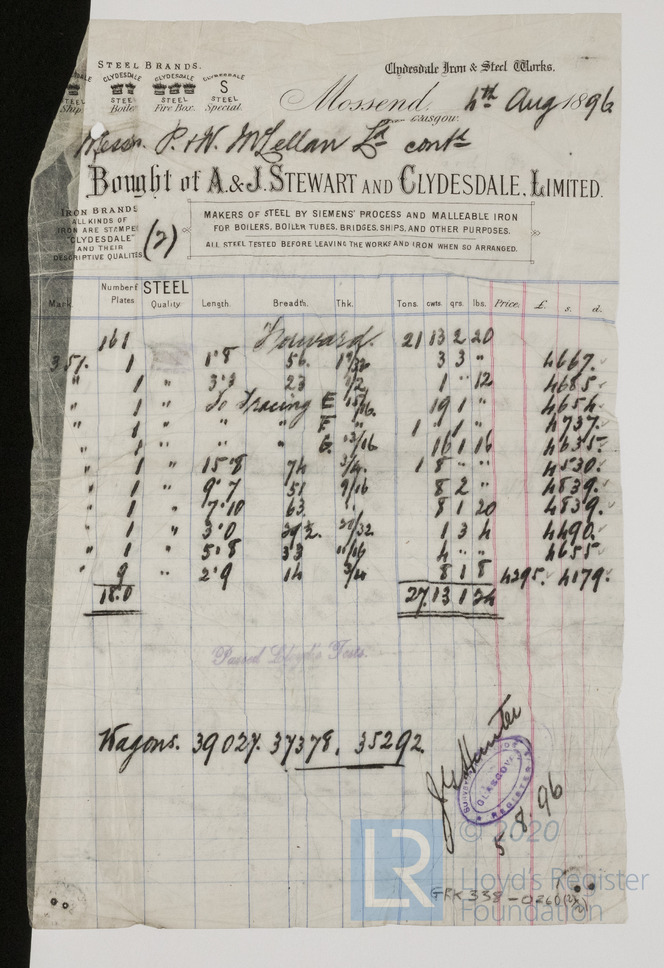 STEEL BRANDS.
Clydesdale Iron & Steel Works.
CLYDESDALE CLYDESDALE CLYDESDALE
STEEL STEEL STEEL S STEEL
Ship. Boiler Fire Box. Special.
Mossend, 4th Aug 1896
Near Glasgow.
Messrs. P. & W. McLellan Ld contd
Bought of A. & J. STEWART AND CLYDESDALE, LIMITED.
IRON BRANDS
ALL KINDS OF
IRON ARE STAMPED
"CLYDESDALE"
AND THEIR
DESCRIPTIVE QUALITIES
(2)
MAKERS OF STEEL BY SIEMENS' PROCESS AND MALLEABLE IRON
FOR BOILERS, BOILER TUBES, BRIDGES, SHIPS, AND OTHER PURPOSES.
ALL STEEL TESTED BEFORE LEAVING THE WORKS AND IRON WHEN SO ARRANGED.
Mark. Number of Plates. STEEL Quality. Length. Breadth. Thk. Tons. cwts. qrs. lbs. Price. £ s. d.
161 Forward. 21 13 2 20
351. 1 1'8 56. 19/32 3 3 " 4667.
" 1 " 3'3 23 1/2 1 " 12 4685.
" 1 " To Tracing E 15/16 19 1 " 4654.
" 1 " " " F " 1 " 1 " 4737.
" 1 " " " G 13/16 16 1 16 4635.
" 1 " 15'8 74 3/4 1 8 " " 4530.
" 1 " 9'7 51 9/16 8 2 " 4839.
" 1 " 7'10 63 " 8 1 20 4839.
" 1 " 3'0 29 1/2 /32 1 3 4 4490.
" 1 " 5'8 33 11/16 4 " " 4655.
" 9 " 2'9 14 3/4 8 1 8 4295. 4179.
180 27 13 1 24
Passed Lloyd's Tests.
Wagons. 39027. 37378. 35292.
J G Hunter
GLASGOW
REGISTER
5.8.96
LR
© 2020
Lloyd's Register
Foundation
GFK338-0260(2/2)